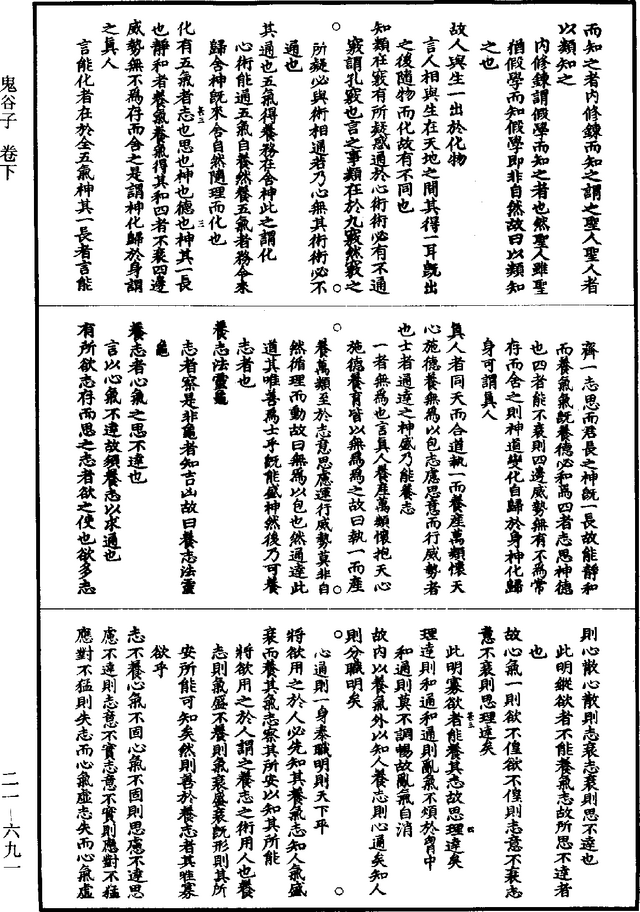 而知之者内修鍊而知之謂之聖人聖人者
以類知之
内修鍊謂假學而知之者也然聖人雖聖
猶假學而知假學即非自然故曰以類知
之也
故人與生一出於化物
言人相與生在天地之間其得一耳既出
之後隨物而化故有不同也
知類在竅有所疑惑通於心術術必有不通
竅謂孔竅也言之事類在於九竅然竅之
所疑必與術相通若乃心無其術術必不
通也
其通也五氣得養務在舍神此之謂化
心術能通五氣自養然養五氣者務令來
歸舍神既來舍自然隨理而化也
化有五氣者志也思也神也德也神其一長
也靜和者養氣養氣得其和四者不衰四邊
威勢無不為存而舍之是謂神化歸於身謂
之真人
言能化者在於全五氣神其一長者言能
齊一志思而君長之神既一長故能靜和
而養氣氣既養德必和焉四者志思神德
也四者能不衰則四邊威勢無有不為常
存而舍之則神道變化自歸於身神化歸
身可謂真人
真人者同天而合道執一而養產萬類懷天
心施德養無為以包志慮思意而行威勢者
也士者通達之神盛乃能養志
一者無為也言真人養產萬類懷抱天心
施德養育皆以無為為之故曰執一而產
養萬類至於志意思慮運行威勢莫非自
然循理而動故曰無為以包也然通達此
道其唯善為士乎既能盛神然後乃可養
志者也
養志法靈龜
志者察是非龜者知吉凶故曰養志法靈
龜
養志者心氣之思不達也
言以心氣不達故須養志以求通也
有所欲志存而思之志者欲之使也欲多志
則心散心散則志衰志衰則思不達也
此明縱欲者不能養氣志故所思不達者
也
故心氣一則欲不偟欲不偟則志意不衰志
意不衰則思理達矣
此明寡欲者能養其志故思理達矣
理達則和通和通則亂氣不煩於胷中
和通則莫不調暢故亂氣自消
故内以養氣外以知人養志則心通矣知人
則分職明矣
心通則一身泰職明則天下平
將欲用之於人必先知其養氣志知人氣盛
衰而養其氣志察其所安以知其所能
將欲用之於人謂之養志之術用人也養
志則氣盛不養則氣衰盛衰既形則其所
安所能可知矣然則善於養志者其唯寡
欲乎
志不養心氣不固心氣不固則思慮不達思
慮不達則志意不實志意不實則應對不猛
應對不猛則失志而心氣虛志失而心氣虛
鬼谷子 卷下
二一—六九一